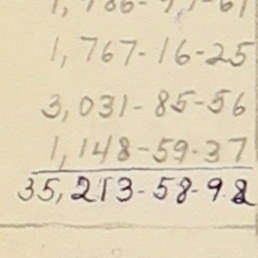 1,767-16-25
3,031-85-56
1,148-59-37
35,213-58-98